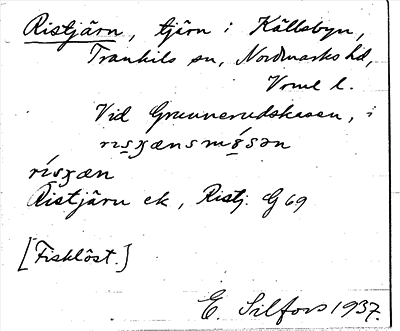 Ristjärn, tjärn i Källsbyn,
Trankils sn, Nordmarks hd,
Vrml l.
Vid Grunnerudskasen, i
rɩsʒænsmósən
rísʒæn
Ristjärn ek, Ristj. G 69
[Fisklöst.]
E. Silfors 1937.